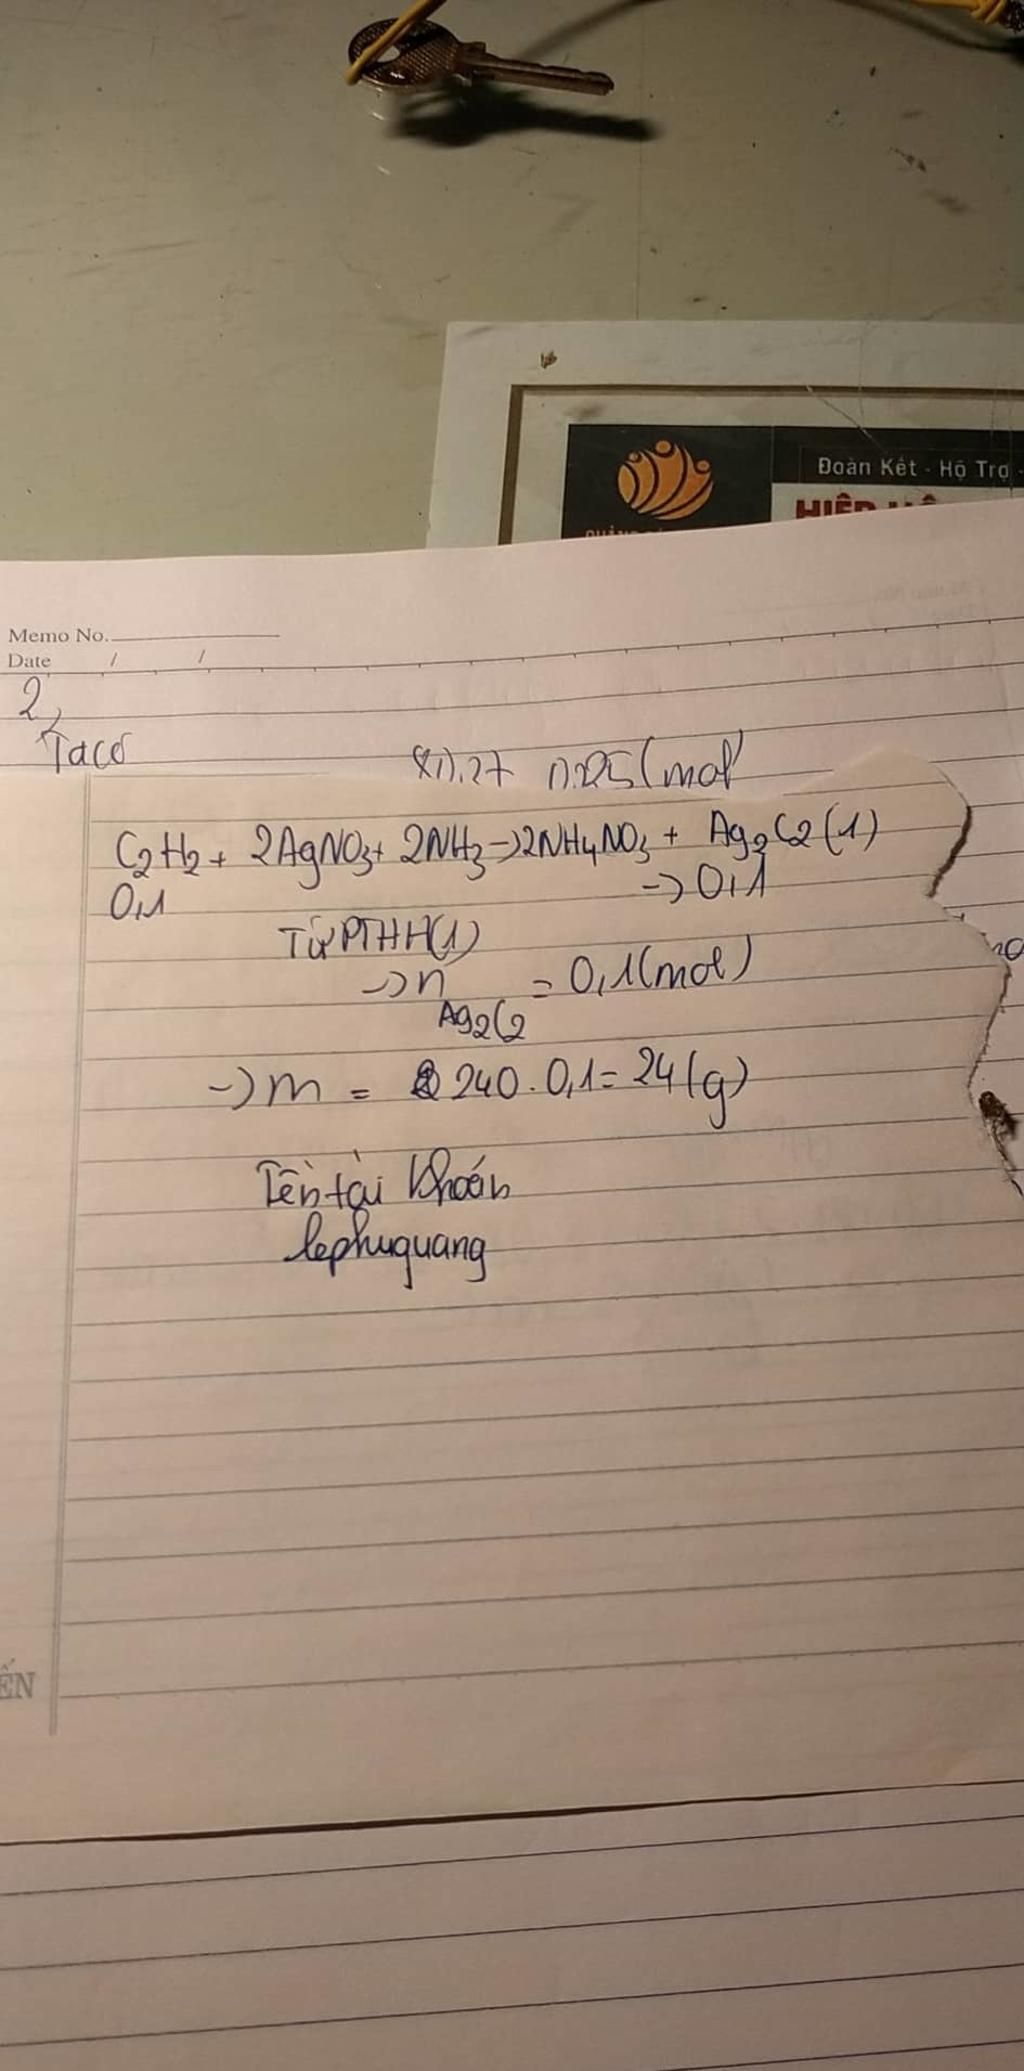 Đoàn Kết - Hộ Trợ -
Memo No.
Date / /
2,
Ta có
C2H2 + 2AgNO3 + 2NH3 -> 2NH4NO3 + Ag2C2 (1)
0,1 -> 0,1
Từ PTHH (1)
-> n Ag2C2 = 0,1 (mol)
-> m = 240 . 0,1 = 24 (g)
Tên tài khoản
lephuquang
ẾN